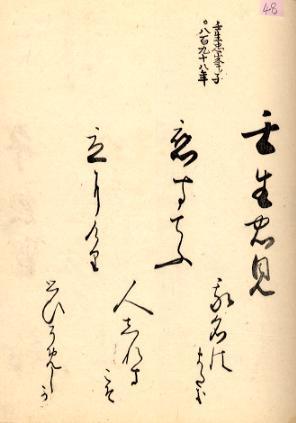 48
壬生忠岑の子
〇八百九十八年
壬生忠見
恋すてふ
我名は
まだき
立にけり
人しれす
こそ
思ひそめし
か